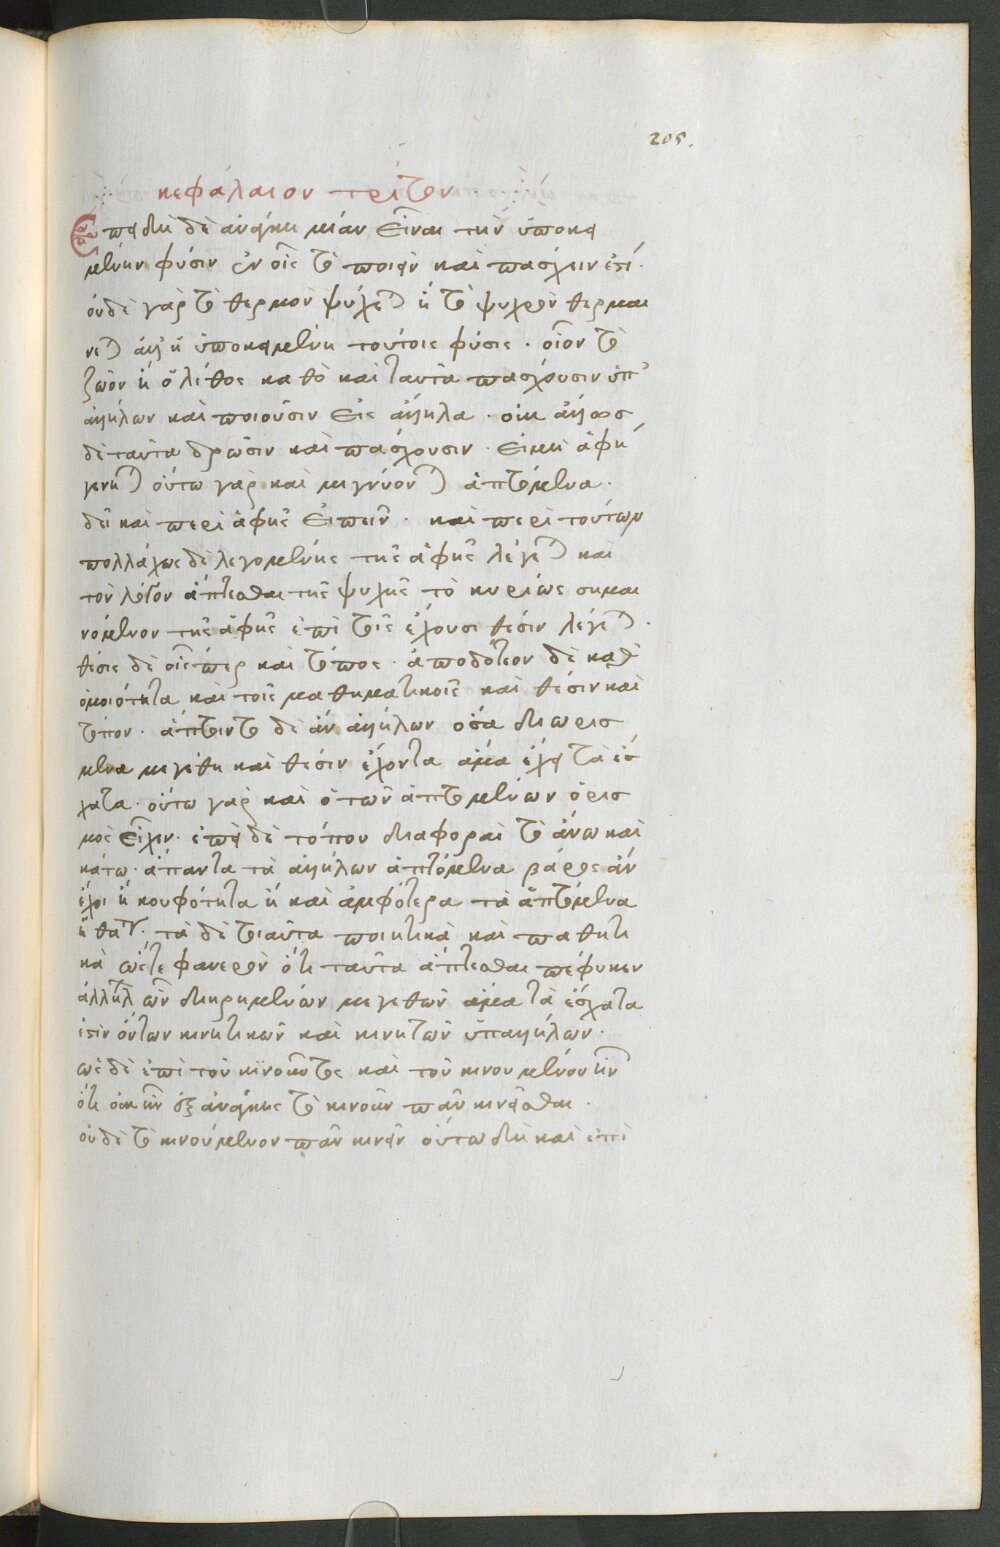 205.
κεφάλαιον τρίτον
Ἐπειδὴ δὲ ἀνάγκη μίαν εἶναι τὴν ὑποκει
μένην φύσιν ἐν οἷς τὸ ποιεῖν καὶ πάσχειν ἐστί.
οὐδὲ γὰρ τὸ θερμὸν ψύχεται ἢ τὸ ψυχρὸν θερμαί
νεται ἀλλ' ἡ ὑποκειμένη τούτοις φύσις. οἷον τὸ
ζῶον ἢ ὁ λίθος καθὸ καὶ ταῦτα πάσχουσιν ὑπ'
ἀλλήλων καὶ ποιοῦσιν εἰς ἄλληλα. οὐκ ἄλλως
δὲ ταῦτα δρῶσιν καὶ πάσχουσιν. εἰ μὴ ἁφὴ
γένηται οὕτω γὰρ καὶ μιγνύονται ἁπτόμενα.
δεῖ καὶ περὶ ἁφῆς εἰπεῖν. καὶ περὶ τούτων
πολλαχῶς δὲ λεγομένης τῆς ἁφῆς λέγεται καὶ
τὸν λόγον ἅπτεσθαι τῆς ψυχῆς τὸ κυρίως σημαι
νόμενον τῆς ἁφῆς ἐπὶ τοῖς ἔχουσι θέσιν λέγεται.
θέσις δὲ οἷσπερ καὶ τόπος. ἀποδοτέον δὲ καθ'
ὁμοιότητα καὶ τοῖς μαθηματικοῖς καὶ θέσιν καὶ
τόπον. ἅπτοιντο δὲ ἂν ἀλλήλων ὅσα διωρισ
μένα μεγέθη καὶ θέσιν ἔχοντα ἅμα ἔχει τὰ ἔσ
χατα. οὕτω γὰρ καὶ ὁ τῶν ἁπτομένων ὁρισ
μὸς εἶχεν. ἐπεὶ δὲ τόπου διαφοραὶ τὸ ἄνω καὶ
κάτω. ἅπαντα τὰ ἀλλήλων ἁπτόμενα βάρος ἂν
ἔχοι ἢ κουφότητα ἢ καὶ ἀμφότερα τὰ ἁπτόμενα
ἢ θάτερον. τὰ δὲ τοιαῦτα ποιητικὰ καὶ παθητι
κὰ ὥστε φανερὸν ὅτι ταῦτα ἅπτεσθαι πέφυκεν
ἀλλήλων ὧν διῃρημένων μεγεθῶν ἅμα τὰ ἔσχατα
ἐστὶν ὄντων κινητικῶν καὶ κινητῶν ὑπ' ἀλλήλων.
ὡς δὲ ἐπὶ τοῦ κινοῦντος καὶ τοῦ κινουμένου ἦν
ὅτι οὐκ ἦν ἐξ ἀνάγκης τὸ κινοῦν πᾶν κινεῖσθαι.
οὐδὲ τὸ κινούμενον πᾶν κινεῖν οὕτω δὴ καὶ ἐπὶ